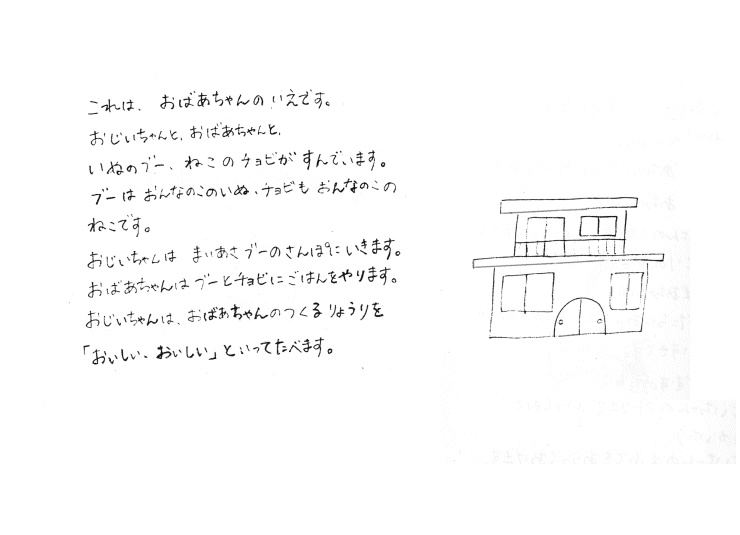 これは、おばあちゃんのいえです。
おじいちゃんと、おばあちゃんと、
いぬのブー、ねこのチョビがすんでいます。
ブーはおんなのこのいぬ、チョビもおんなのこの
ねこです。
おじいちゃんはまいあさブーのさんぽにいきます。
おばあちゃんはブーとチョビにごはんをやります。
おじいちゃんは、おばあちゃんのつくるりょうりを
「おいしい、おいしい」といってたべます。